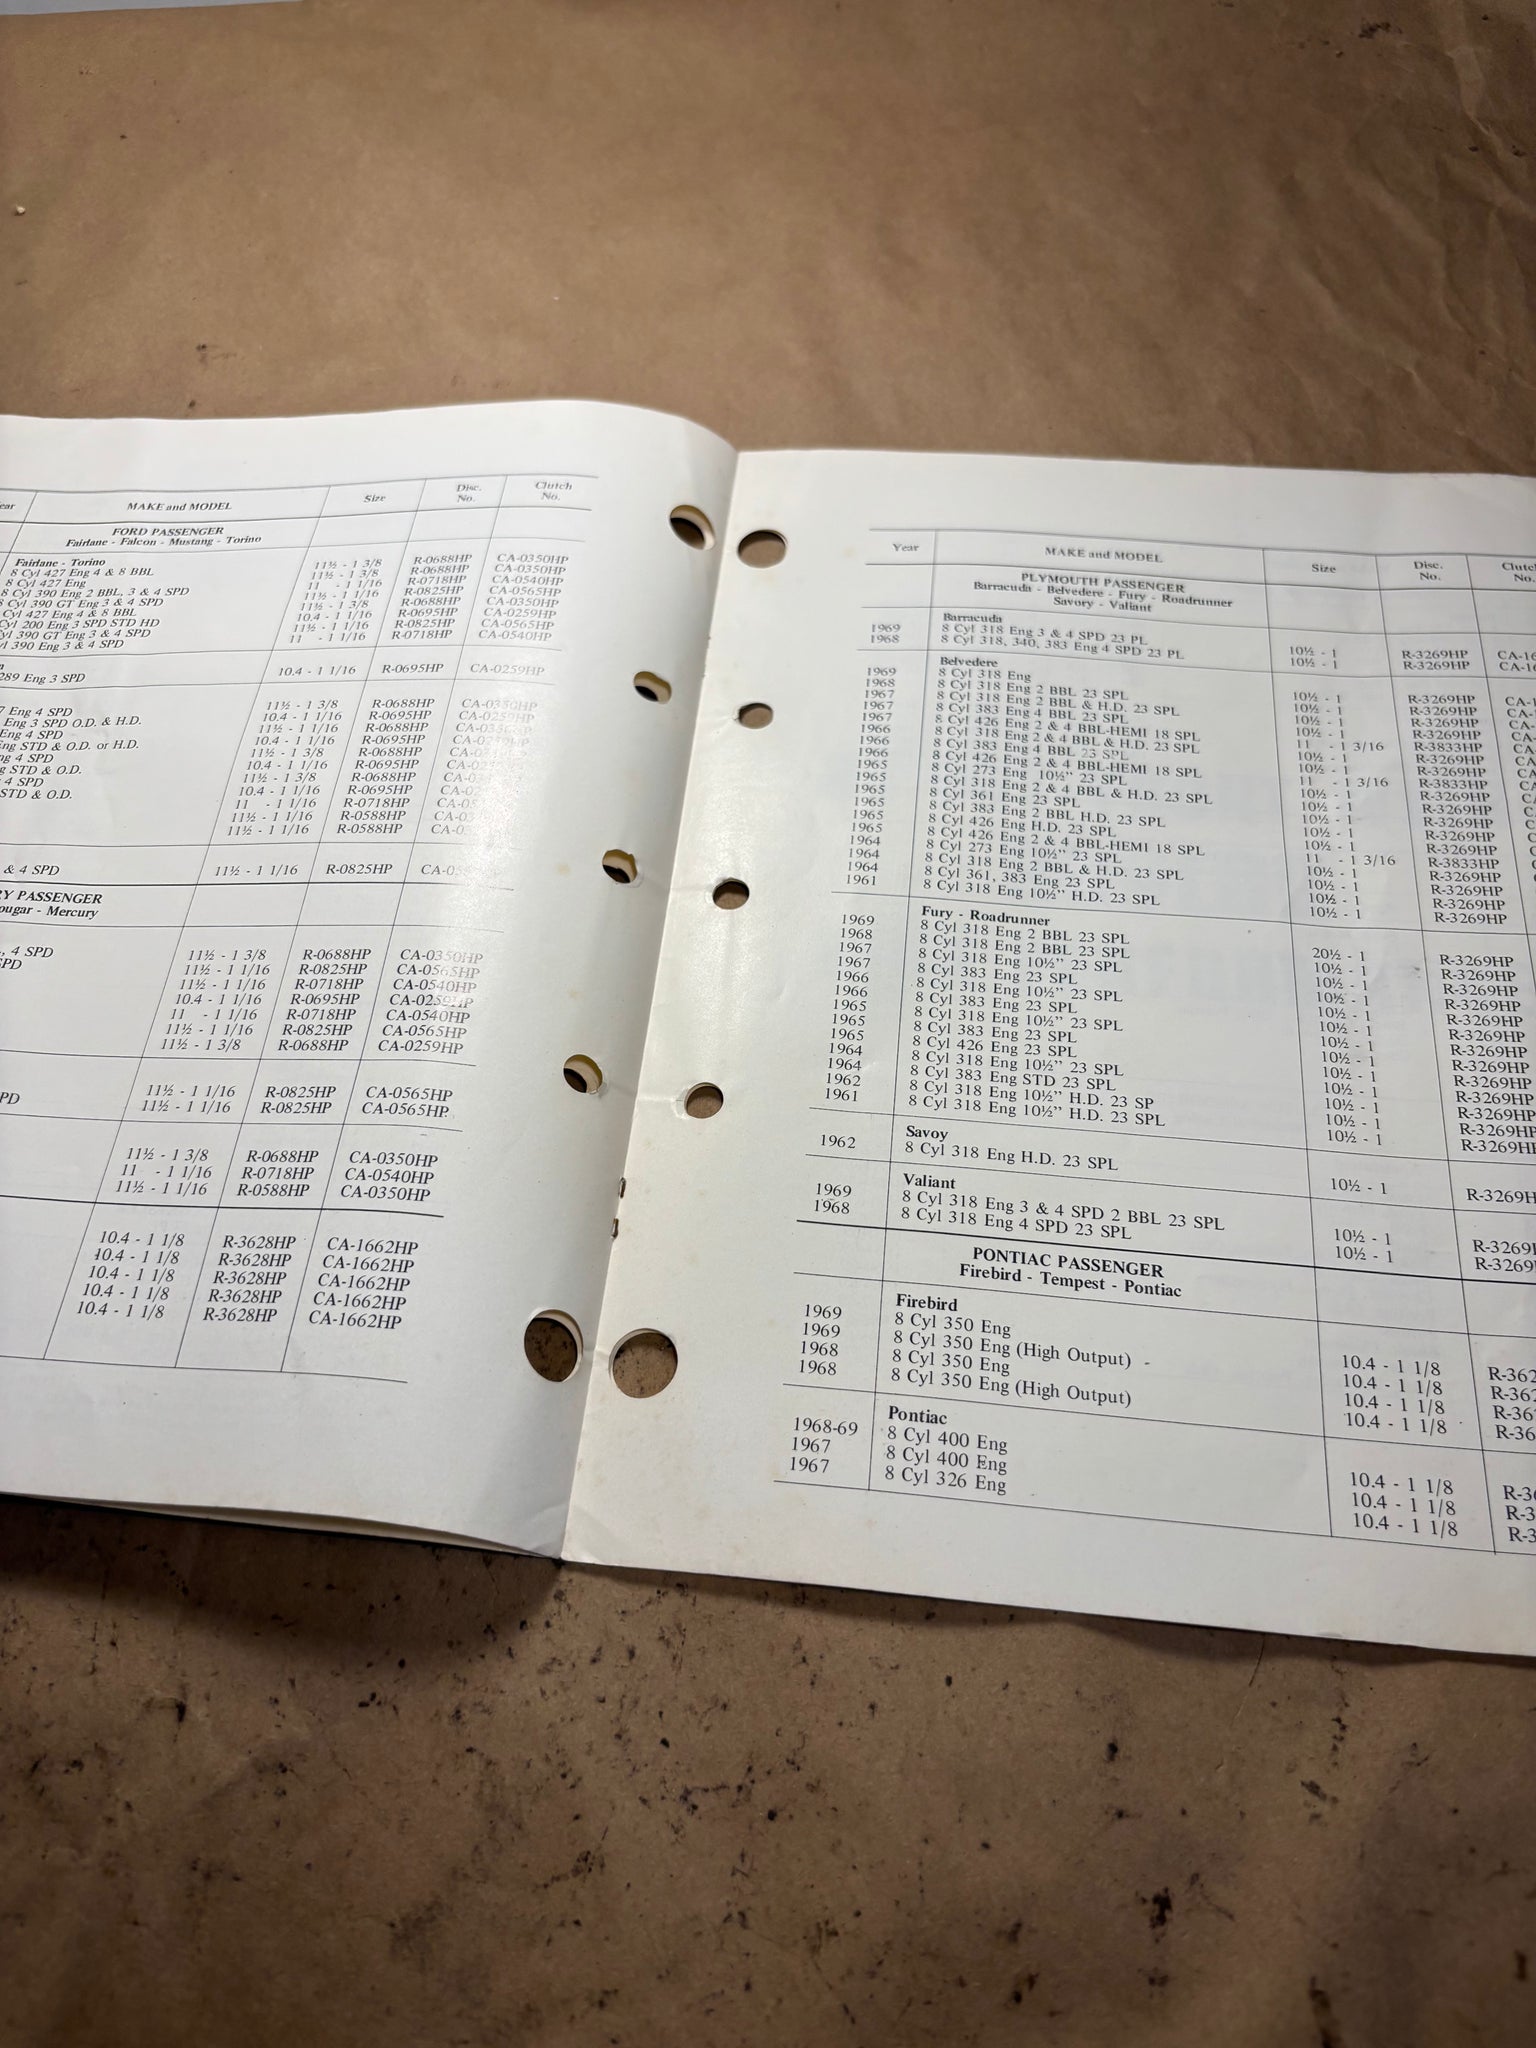 ear MAKE and MODEL Size Disc. No. Clutch No.
FORD PASSENGER
Fairlane - Falcon - Mustang - Torino
Fairlane - Torino
8 Cyl 427 Eng 4 & 8 BBL 11½ - 1 3/8 R-0688HP CA-0350HP
8 Cyl 427 Eng 11½ - 1 3/8 R-0688HP CA-0350HP
8 Cyl 390 Eng 2 BBL, 3 & 4 SPD 11 - 1 1/16 R-0718HP CA-0540HP
8 Cyl 390 GT Eng 3 & 4 SPD 11½ - 1 1/16 R-0825HP CA-0565HP
Cyl 427 Eng 4 & 8 BBL 11½ - 1 3/8 R-0688HP CA-0350HP
Cyl 200 Eng 3 SPD STD HD 10.4 - 1 1/16 R-0695HP CA-0259HP
yl 390 GT Eng 3 & 4 SPD 11½ - 1 1/16 R-0825HP CA-0565HP
yl 390 Eng 3 & 4 SPD 11 - 1 1/16 R-0718HP CA-0540HP
289 Eng 3 SPD 10.4 - 1 1/16 R-0695HP CA-0259HP
7 Eng 4 SPD 11½ - 1 3/8 R-0688HP CA-0350HP
Eng 3 SPD O.D. & H.D. 10.4 - 1 1/16 R-0695HP CA-0259HP
Eng 4 SPD 11½ - 1 1/16 R-0688HP
ng STD & O.D. or H.D. 10.4 - 1 1/16 R-0695HP
ng 4 SPD 11½ - 1 3/8 R-0688HP
g STD & O.D. 10.4 - 1 1/16 R-0695HP
4 SPD 11½ - 1 3/8 R-0688HP
STD & O.D. 10.4 - 1 1/16 R-0695HP
11 - 1 1/16 R-0718HP
11½ - 1 1/16 R-0588HP
11½ - 1 1/16 R-0588HP
& 4 SPD 11½ - 1 1/16 R-0825HP
RY PASSENGER
ougar - Mercury
, 4 SPD 11½ - 1 3/8 R-0688HP CA-0350HP
SPD 11½ - 1 1/16 R-0825HP CA-0565HP
11½ - 1 1/16 R-0718HP CA-0540HP
10.4 - 1 1/16 R-0695HP CA-0259HP
11 - 1 1/16 R-0718HP CA-0540HP
11½ - 1 1/16 R-0825HP CA-0565HP
11½ - 1 3/8 R-0688HP CA-0259HP
PD 11½ - 1 1/16 R-0825HP CA-0565HP
11½ - 1 1/16 R-0825HP CA-0565HP
11½ - 1 3/8 R-0688HP CA-0350HP
11 - 1 1/16 R-0718HP CA-0540HP
11½ - 1 1/16 R-0588HP CA-0350HP
10.4 - 1 1/8 R-3628HP CA-1662HP
10.4 - 1 1/8 R-3628HP CA-1662HP
10.4 - 1 1/8 R-3628HP CA-1662HP
10.4 - 1 1/8 R-3628HP CA-1662HP
10.4 - 1 1/8 R-3628HP CA-1662HP
Year MAKE and MODEL Size Disc. No. Clutc No.
PLYMOUTH PASSENGER
Barracuda - Belvedere - Fury - Roadrunner
Savory - Valiant
Barracuda
1969 8 Cyl 318 Eng 3 & 4 SPD 23 PL 10½ - 1 R-3269HP CA-16
1968 8 Cyl 318, 340, 383 Eng 4 SPD 23 PL 10½ - 1 R-3269HP CA-16
Belvedere
1969 8 Cyl 318 Eng 10½ - 1 R-3269HP CA-1
1968 8 Cyl 318 Eng 2 BBL 23 SPL 10½ - 1 R-3269HP CA-
1967 8 Cyl 318 Eng 2 BBL & H.D. 23 SPL 10½ - 1 R-3269HP CA-
1967 8 Cyl 383 Eng 4 BBL 23 SPL 10½ - 1 R-3269HP CA-
1967 8 Cyl 426 Eng 2 & 4 BBL-HEMI 18 SPL 11 - 1 3/16 R-3833HP CA
1966 8 Cyl 318 Eng 2 & 4 BBL & H.D. 23 SPL 10½ - 1 R-3269HP CA
1966 8 Cyl 383 Eng 4 BBL 23 SPL 10½ - 1 R-3269HP CA
1966 8 Cyl 426 Eng 2 & 4 BBL-HEMI 18 SPL 11 - 1 3/16 R-3833HP CA
1965 8 Cyl 273 Eng 10½” 23 SPL 10½ - 1 R-3269HP CA
1965 8 Cyl 318 Eng 2 & 4 BBL & H.D. 23 SPL 10½ - 1 R-3269HP C
1965 8 Cyl 361 Eng 23 SPL 10½ - 1 R-3269HP C
1965 8 Cyl 383 Eng 2 BBL H.D. 23 SPL 10½ - 1 R-3269HP C
1965 8 Cyl 426 Eng H.D. 23 SPL 10½ - 1 R-3269HP C
1965 8 Cyl 426 Eng 2 & 4 BBL-HEMI 18 SPL 11 - 1 3/16 R-3833HP
1964 8 Cyl 273 Eng 10½” 23 SPL 10½ - 1 R-3269HP
1964 8 Cyl 318 Eng 2 BBL & H.D. 23 SPL 10½ - 1 R-3269HP
1964 8 Cyl 361, 383 Eng 23 SPL 10½ - 1 R-3269HP
1961 8 Cyl 318 Eng 10½” H.D. 23 SPL 10½ - 1 R-3269HP
Fury - Roadrunner
1969 8 Cyl 318 Eng 2 BBL 23 SPL 20½ - 1 R-3269HP
1968 8 Cyl 318 Eng 2 BBL 23 SPL 10½ - 1 R-3269HP
1967 8 Cyl 318 Eng 10½” 23 SPL 10½ - 1 R-3269HP
1967 8 Cyl 383 Eng 23 SPL 10½ - 1 R-3269HP
1966 8 Cyl 318 Eng 10½” 23 SPL 10½ - 1 R-3269HP
1966 8 Cyl 383 Eng 23 SPL 10½ - 1 R-3269HP
1965 8 Cyl 318 Eng 10½” 23 SPL 10½ - 1 R-3269HP
1965 8 Cyl 383 Eng 23 SPL 10½ - 1 R-3269HP
1965 8 Cyl 426 Eng 23 SPL 10½ - 1 R-3269HP
1964 8 Cyl 318 Eng 10½” 23 SPL 10½ - 1 R-3269HP
1964 8 Cyl 383 Eng STD 23 SPL 10½ - 1 R-3269HP
1962 8 Cyl 318 Eng 10½” H.D. 23 SP 10½ - 1 R-3269HP
1961 8 Cyl 318 Eng 10½” H.D. 23 SPL 10½ - 1 R-3269H
Savoy
1962 8 Cyl 318 Eng H.D. 23 SPL 10½ - 1 R-3269H
Valiant
1969 8 Cyl 318 Eng 3 & 4 SPD 2 BBL 23 SPL 10½ - 1 R-3269
1968 8 Cyl 318 Eng 4 SPD 23 SPL 10½ - 1 R-3269
PONTIAC PASSENGER
Firebird - Tempest - Pontiac
Firebird
1969 8 Cyl 350 Eng 10.4 - 1 1/8 R-362
1969 8 Cyl 350 Eng (High Output) 10.4 - 1 1/8 R-362
1968 8 Cyl 350 Eng 10.4 - 1 1/8 R-36
1968 8 Cyl 350 Eng (High Output) 10.4 - 1 1/8 R-36
Pontiac
1968-69 8 Cyl 400 Eng 10.4 - 1 1/8 R-36
1967 8 Cyl 400 Eng 10.4 - 1 1/8 R-3
1967 8 Cyl 326 Eng 10.4 - 1 1/8 R-3